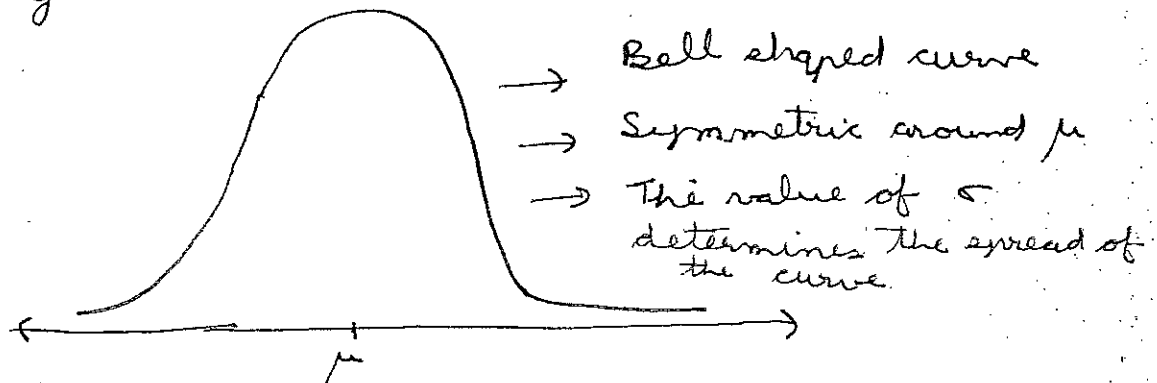 y
→ Bell shaped curve
→ Symmetric around μ
→ The value of σ
determines the spread of
the curve
μ